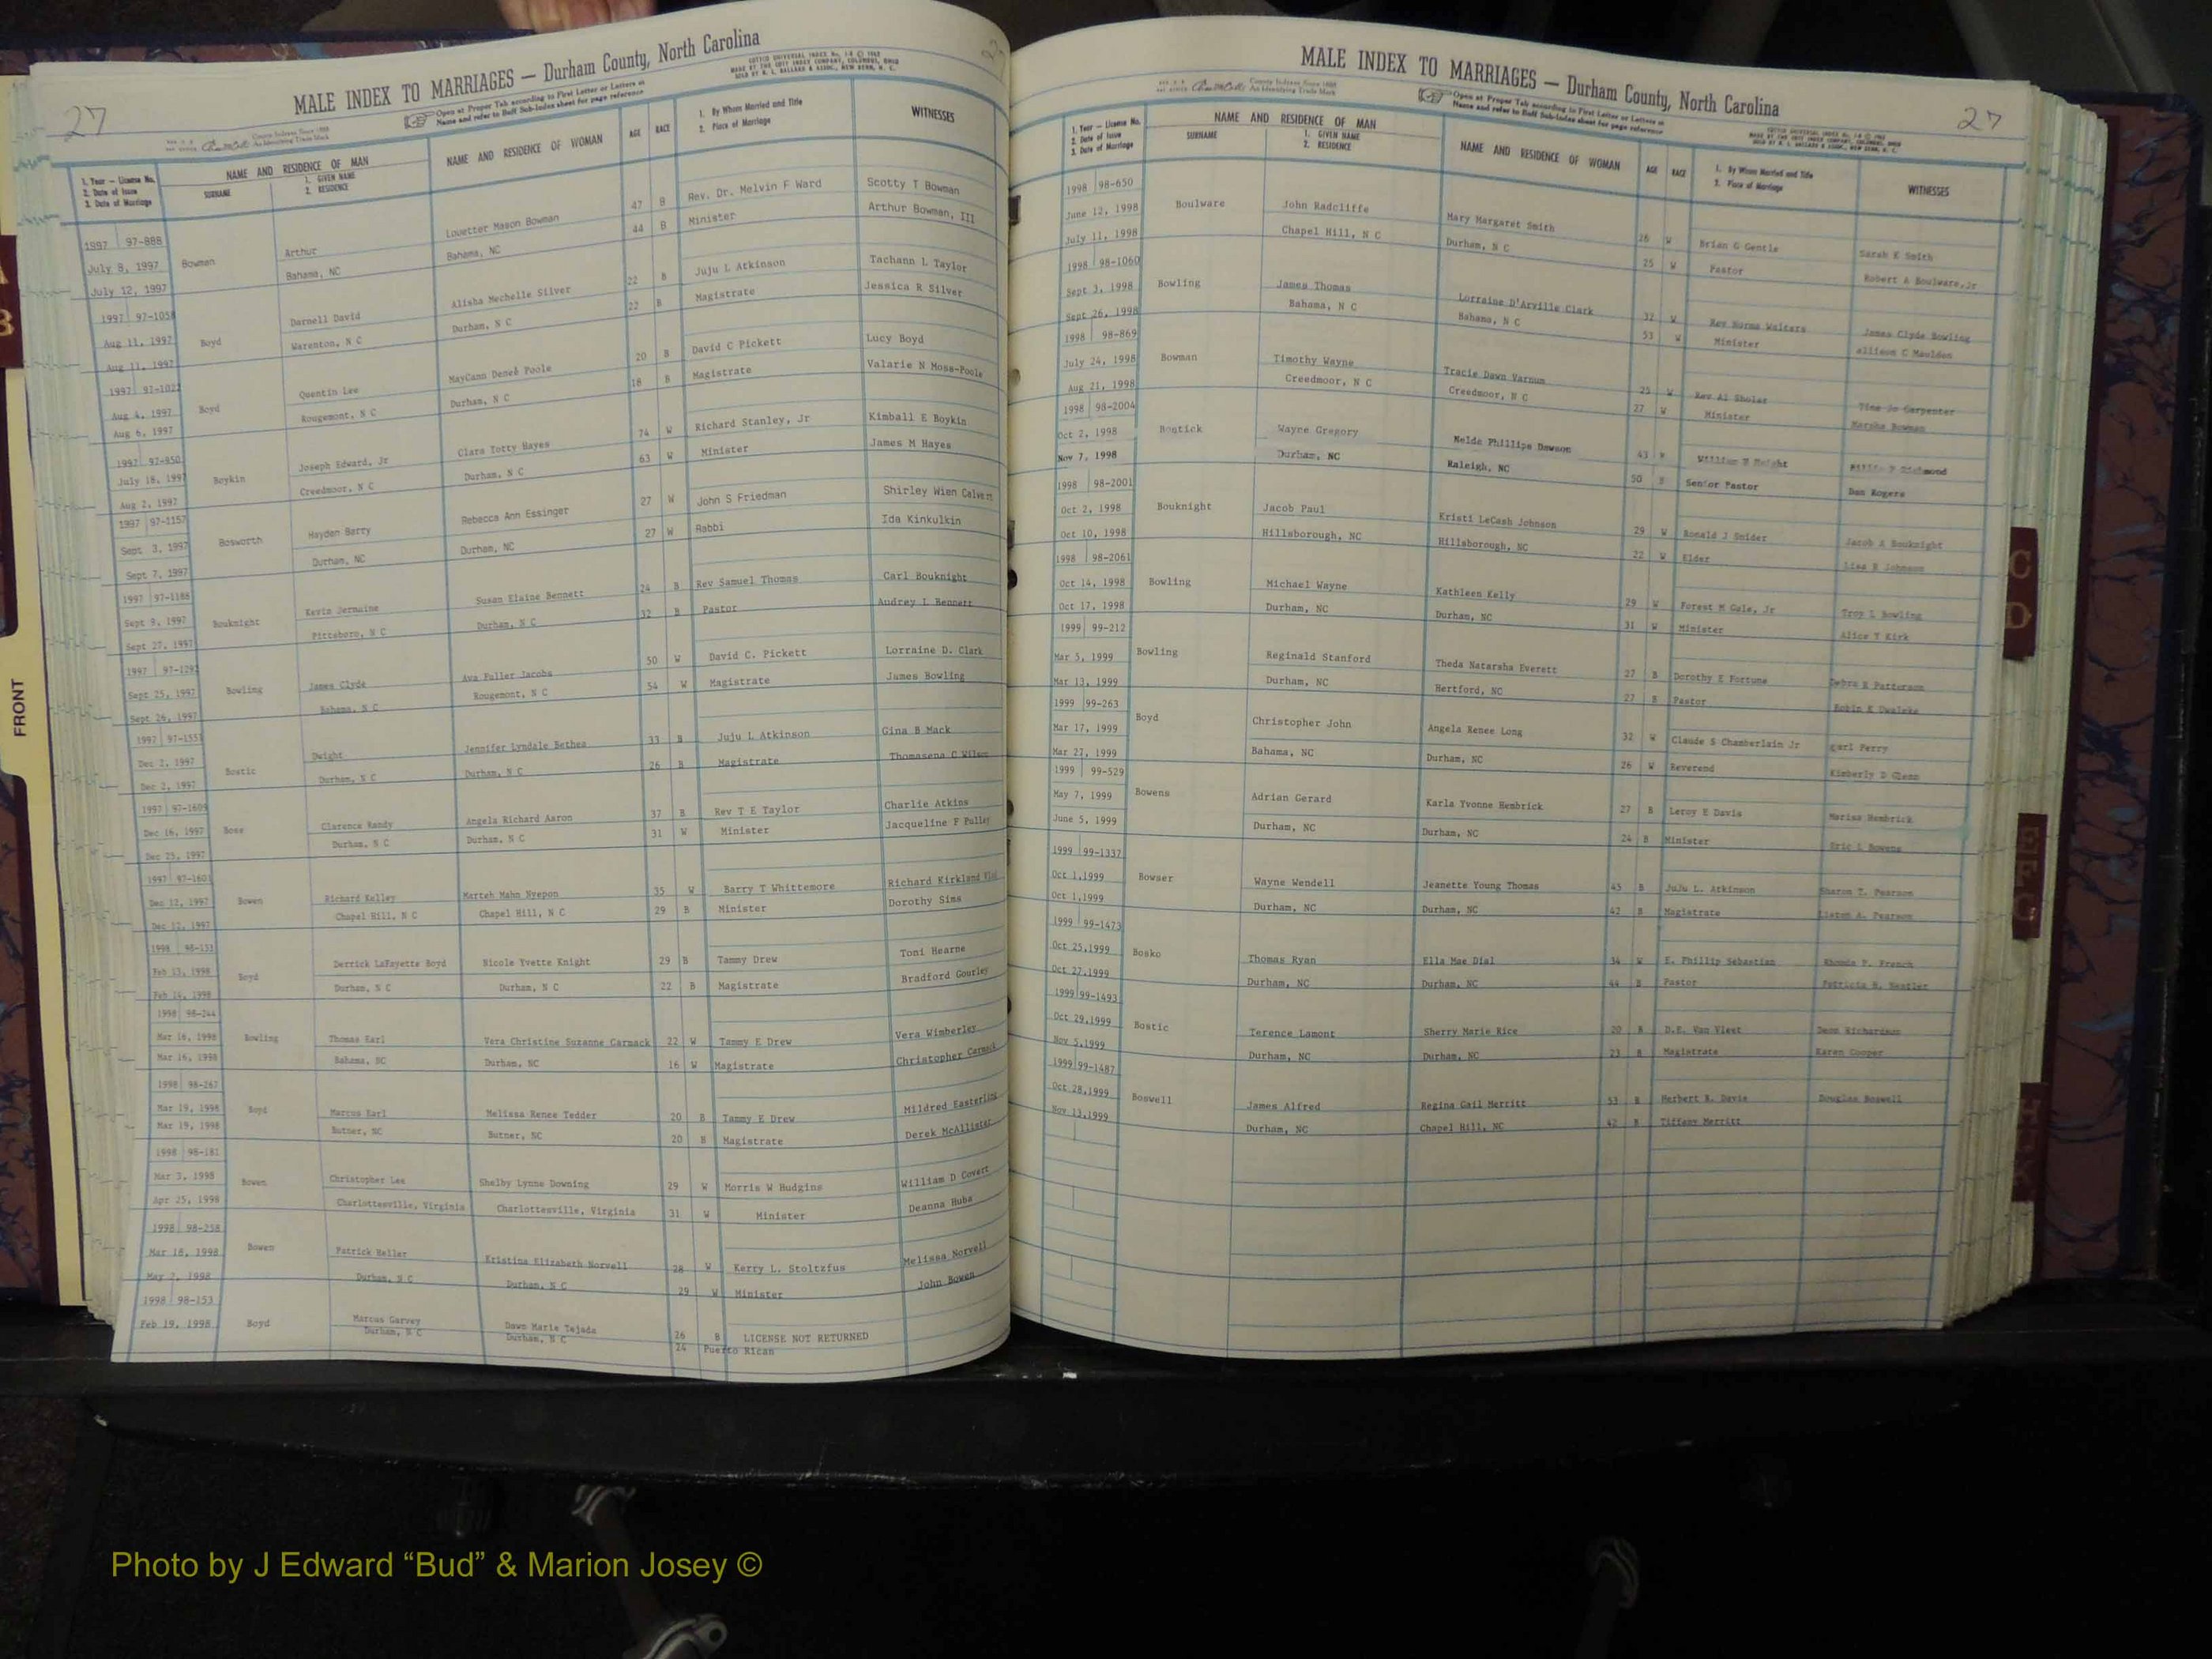 27
MALE INDEX TO MARRIAGES — Durham County, North Carolina
Open at Proper Tab according to First Letter or Letters of
Name and refer to Buff Sub-Index sheet for page reference
COTT INDEX COMPANY, COLUMBUS, OHIO
County Indexes Since 1888
An Identifying Trade Mark
1. Year — License No.
2. Date of Issue
3. Date of Marriage
NAME AND RESIDENCE OF MAN
SURNAME
1. GIVEN NAME
2. RESIDENCE
NAME AND RESIDENCE OF WOMAN
AGE
RACE
1. By Whom Married and Title
2. Place of Marriage
WITNESSES
1997 97-888 Arthur Louetter Mason Bowman 47 B Rev. Dr. Melvin F Ward Scotty T Bowman
July 8, 1997 Bowman Bahama, NC Bahama, NC 44 B Minister Arthur Bowman, III
July 12, 1997
1997 97-105 Darnell David Alisha Mechelle Silver 22 B Juju L Atkinson Tachann L Taylor
Aug 11, 1997 Boyd Warenton, N C Durham, N C 22 B Magistrate Jessica R Silver
Aug 11, 1997
1997 97-102 Quentin Lee MayCann Poole 20 B David C Pickett Lucy Boyd
Aug 4, 1997 Boyd Rougemont, N C Durham, N C 18 B Magistrate Valarie N Moss-Poole
Aug 6, 1997
1997 97-950 Joseph Edward, Jr Clara Totty Hayes 74 W Richard Stanley, Jr Kimball E Boykin
July 18, 1997 Boykin Creedmoor, N C Durham, N C 63 W Minister James M Hayes
Aug 2, 1997
1997 97-1157 Hayden Barry Rebecca Ann Essinger 27 W John S Friedman Shirley Wien Calvert
Sept 3, 1997 Bosworth Durham, NC Durham, NC 27 W Rabbi Ida Kinkulkin
Sept 7, 1997
1997 97-1186 Kevin Jermaine Susan Elaine Bennett 24 B Rev Samuel Thomas Carl Bouknight
Sept 9, 1997 Bouknight Pittsboro, N C Durham, N C 32 B Pastor Audrey L Bennett
Sept 27, 1997
1997 97-1292 James Clyde Ava Fuller Jacobs 50 W David C. Pickett Lorraine D. Clark
Sept 25, 1997 Bowling Bahama, N C Rougemont, N C 54 W Magistrate James Bowling
Sept 26, 1997
1997 97-1557 Dwight Jennifer Lyndale Bethea 33 B Juju L Atkinson Gina B Mack
Dec 2, 1997 Bostic Durham, N C Durham, N C 26 B Magistrate Thomasena C Wilson
Dec 2, 1997
1997 97-1609 Clarence Randy Angela Richard Aaron 37 B Rev T E Taylor Charlie Atkins
Dec 16, 1997 Boss Durham, N C Durham, N C 31 W Minister Jacqueline F Pulley
Dec 25, 1997
1997 97-1601 Richard Kelley Marteh Mahn Nyepon 35 W Barry T Whittemore Richard Kirkland
Dec 12, 1997 Bowen Chapel Hill, N C Chapel Hill, N C 29 B Minister Dorothy Sims
Dec 12, 1997
1998 98-133 Derrick LaFayette Boyd Nicole Yvette Knight 29 B Tammy Drew Toni Hearne
Feb 13, 1998 Boyd Durham, N C Durham, N C 22 B Magistrate Bradford Gourley
Feb 14, 1998
1998 98-244
Mar 16, 1998 Bowling Thomas Earl Vera Christine Suzanne Carmack 22 W Tammy E Drew Vera Wimberley
Mar 16, 1998 Bahama, NC Durham, NC 16 W Magistrate Christopher Carmack
1998 98-267
Mar 19, 1998 Boyd Marcus Earl Melissa Renee Tedder 20 B Tammy E Drew Mildred Easterling
Mar 19, 1998 Butner, NC Butner, NC 20 B Magistrate Derek McAllister
1998 98-181
Mar 3, 1998 Bowen Christopher Lee Shelby Lynne Downing 29 W Morris W Hudgins William D Covert
Apr 25, 1998 Charlottesville, Virginia Charlottesville, Virginia 31 W Minister Deanna Huba
1998 98-258
Mar 18, 1998 Bowen Patrick Heller Kristina Elizabeth Norvell 28 W Kerry L. Stoltzfus Melissa Norvell
May 2, 1998 Durham, N C Durham, N C 29 W Minister John Bowen
1998 98-153
Feb 19, 1998 Boyd Marcus Garvey Dawn Marie Tejada 26 B LICENSE NOT RETURNED
Durham, N C Durham, N C 24 Puerto Rican
MALE INDEX TO MARRIAGES — Durham County, North Carolina
27
Open at Proper Tab according to First Letter or Letters of
Name and refer to Buff Sub-Index sheet for page reference
County Indexes Since 1888
An Identifying Trade Mark
1. Year — License No.
2. Date of Issue
3. Date of Marriage
NAME AND RESIDENCE OF MAN
SURNAME
1. GIVEN NAME
2. RESIDENCE
NAME AND RESIDENCE OF WOMAN
AGE
RACE
1. By Whom Married and Title
2. Place of Marriage
WITNESSES
1998 98-650
June 12, 1998 Boulware John Radcliffe Mary Margaret Smith 26 W Brian G Gentle Sarah K Smith
July 11, 1998 Chapel Hill, N C Durham, N C 25 W Pastor Robert A Boulware, Jr
1998 98-1060
Sept 3, 1998 Bowling James Thomas Lorraine D'Arville Clark 32 W Rev Norma Walters James Clyde Bowling
Sept 26, 1998 Bahama, N C Bahama, N C 53 W Minister Allison C Maulden
1998 98-869
July 24, 1998 Bowman Timothy Wayne Tracie Dawn Varnum 25 W Rev Al Sholar Tina Jo Carpenter
Aug 21, 1998 Creedmoor, N C Creedmoor, N C 27 W Minister Marsha Bowman
1998 98-2004
Oct 2, 1998 Bostick Wayne Gregory Nelda Phillips Dawson 43 Knight Richmond
Nov 7, 1998 Durham, NC Raleigh, NC 50 Senior Pastor Dan Rogers
1998 98-2001
Oct 2, 1998 Bouknight Jacob Paul Kristi LeCash Johnson 29 W Ronald J Snider Jacob A Bouknight
Oct 10, 1998 Hillsborough, NC Hillsborough, NC 22 W Elder Lisa R Johnson
1998 98-2061
Oct 14, 1998 Bowling Michael Wayne Kathleen Kelly 29 W Forest M Gale, Jr Troy L Bowling
Oct 17, 1998 Durham, NC Durham, NC 31 W Minister Alice T Kirk
1999 99-212
Mar 5, 1999 Bowling Reginald Stanford Theda Natarsha Everett 27 B Dorothy E Fortune Debra R Patterson
Mar 13, 1999 Durham, NC Hertford, NC 27 B Pastor Robin K
1999 99-263
Mar 17, 1999 Boyd Christopher John Angela Renee Long 32 W Claude S Chamberlain Jr Karl Perry
Mar 27, 1999 Bahama, NC Durham, NC 26 W Reverend Kimberly D Glenn
1999 99-529
May 7, 1999 Bowens Adrian Gerard Karla Yvonne Hembrick 27 B Leroy E Davis Marisa Hembrick
June 5, 1999 Durham, NC Durham, NC 24 B Minister Eric L Bowens
1999 99-1337
Oct 1,1999 Bowser Wayne Wendell Jeanette Young Thomas 45 B JuJu L. Atkinson Sharon T. Pearson
Oct 1,1999 Durham, NC Durham, NC 42 B Magistrate Liston A. Pearson
1999 99-1473
Oct 25,1999 Bosko Thomas Ryan Ella Mae Dial 34 W E. Phillip Sebastian Rhonda P. French
Oct 27,1999 Durham, NC Durham, NC 44 B Pastor Patricia H.
1999 99-1493
Oct 29,1999 Bostic Terence Lamont Sherry Marie Rice 20 B D.E. Van Vleet Deon Richardson
Nov 5,1999 Durham, NC Durham, NC 23 B Magistrate Karen Cooper
1999 99-1487
Oct 28,1999 Boswell James Alfred Regina Gail Merritt 53 B Herbert R. Davis Douglas Boswell
Nov 13,1999 Durham, NC Chapel Hill, NC 42 B Tiffany Merritt
FRONT
C
D
Photo by J Edward “Bud” & Marion Josey ©